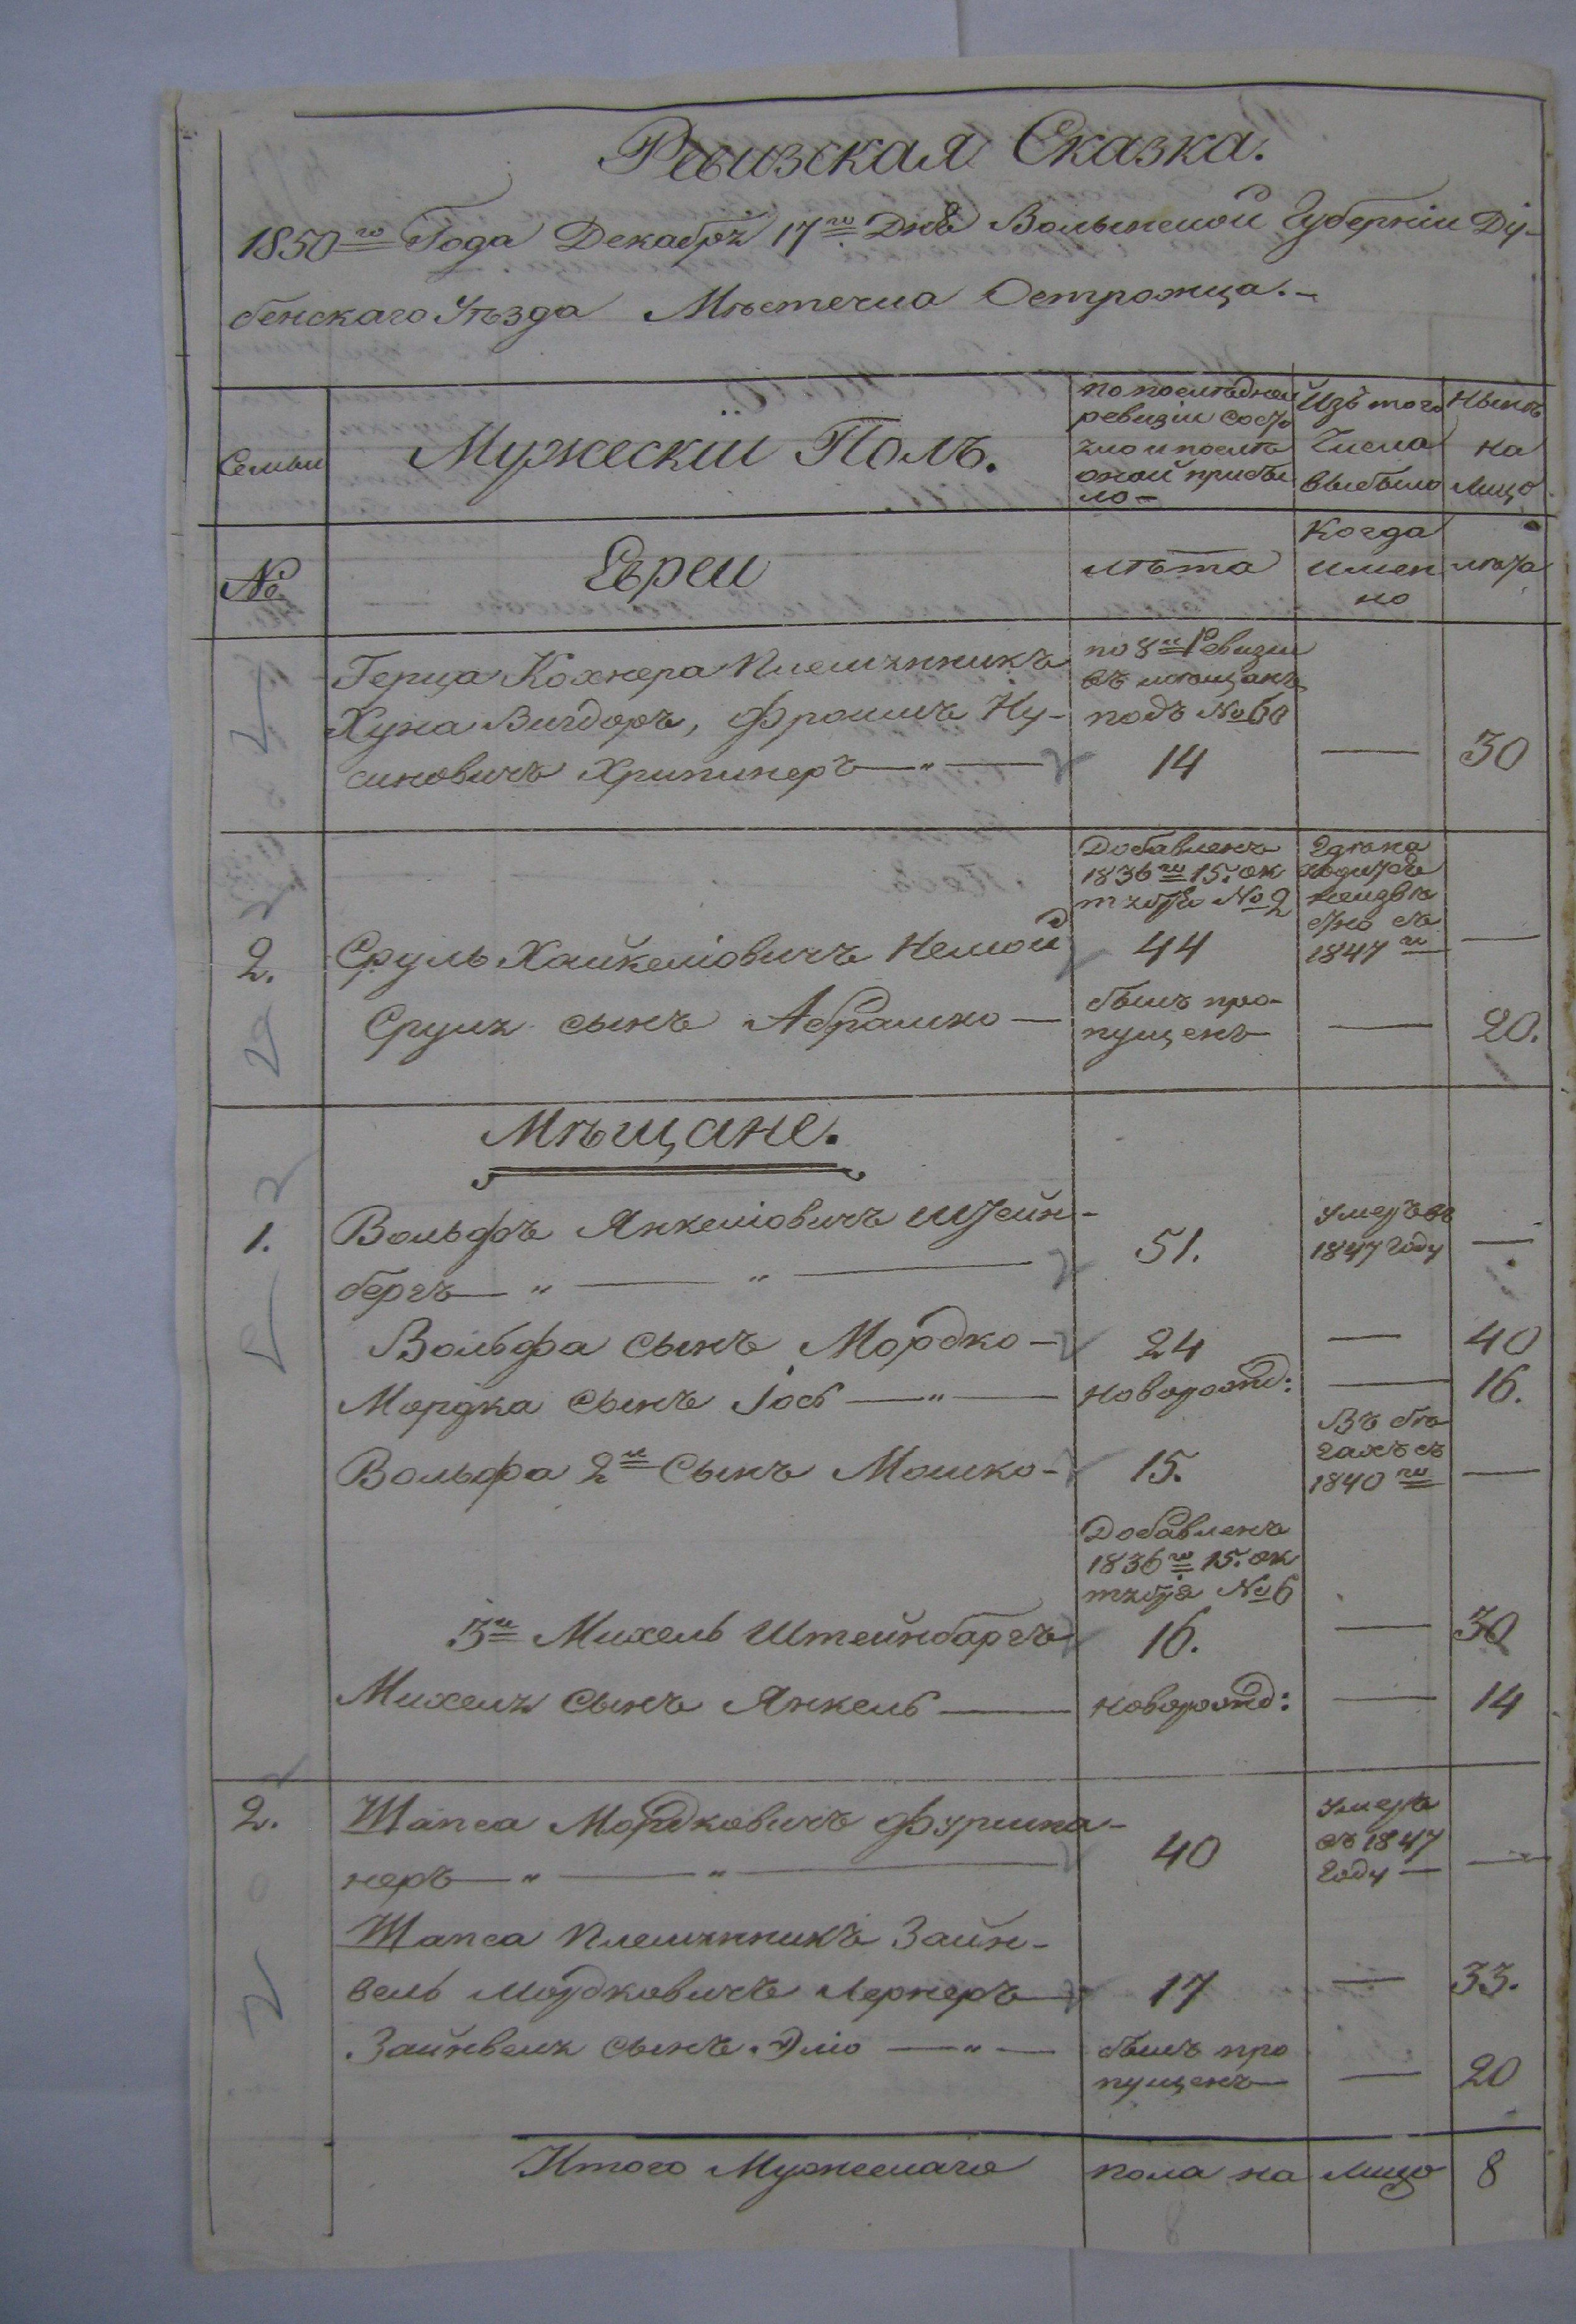 Ревизская Сказка.
1850го Года Декабря 17го Дня Волынской Губернии Ду-
бенскаго Уѣзда Мѣстечка Острожца.-
Семьи
Мужескiй Полъ.
по послѣдней
ревизiи состо
яло и послѣ
оной прибы
ло-
Изъ того
Числа
выбыло
Нынѣ
на
лицо
№
Евреи
лѣта
Когда
имен
но
лѣта
Герца Кохнера Племянникъ
Хуна Вигдоръ, Фроимъ Ну-
синовичъ Хрипинеръ — " —
по 8й Ревизiи
въ мѣщанъ
подъ №60
14
—
30
2.
Сруль Хайкелiовичъ Немой
Добавленъ
1836го 15. ок
тября №2
44
Гдѣ на
ходится
неизвѣ
стно съ
1847го
—
Сруля сынъ Абрамко —
былъ про-
пущенъ
—
20.
Мѣщане.
1.
Вольфъ Янкелiовичъ Штейн-
бергъ — " — " —
51.
Умеръ въ
1847 Году
—
Вольфа сынъ Мордко —
24
—
40
Мордка сынъ Iось — " —
новорожд:
—
16.
Вольфа 2й Сынъ Мошко -
15.
Въ бѣ
гахъ съ
1840го
—
3й Михель Штейнбаргъ
Добавленъ
1836го 15. ок
тября №6
16.
—
30
Михеля сынъ Янкель —
новорожд:
—
14
2.
Шапса Мордковичъ Фурмка-
неръ — " — " —
40
Умеръ
въ 1847
Году —
—
Шапса Племянникъ Зайн-
вель Мордковичъ Лернеръ —
17
—
33.
Зайнвеля сынъ Элiо — " —
былъ про
пущенъ
—
20
Итого Мужескаго пола на лицо 8
8